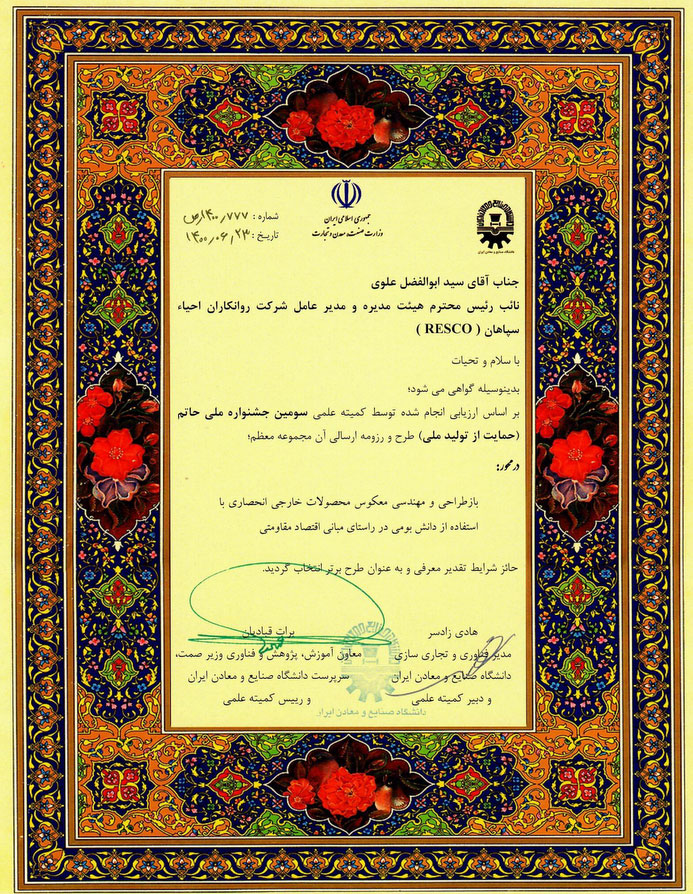 جمهوری اسلامی ایران
وزارت صنعت، معدن و تجارت
شماره : ۱۴۰۰٫۷۷۷٫ص
تاریخ : ۱۴۰۰٫۰۶٫۲۳
دانشگاه صنایع و معادن ایران
جناب آقای سید ابوالفضل علوی
نائب رئیس محترم هیئت مدیره و مدیر عامل شرکت روانکاران احیاء
سپاهان ( RESCO )
با سلام و تحیات
بدینوسیله گواهی می شود؛
بر اساس ارزیابی انجام شده توسط کمیته علمی سومین جشنواره ملی حاتم
(حمایت از تولید ملی) طرح و رزومه ارسالی آن مجموعه معظم؛
در محور:
بازطراحی و مهندسی معکوس محصولات خارجی انحصاری با
استفاده از دانش بومی در راستای مبانی اقتصاد مقاومتی
حائز شرایط تقدیر معرفی و به عنوان طرح برتر انتخاب گردید.
هادی زادسر
مدیر فناوری و تجاری سازی
دانشگاه صنایع و معادن ایران
و دبیر کمیته علمی
برات قبادیان
معاون آموزش، پژوهش و فناوری وزیر صمت،
سرپرست دانشگاه صنایع و معادن ایران
و رییس کمیته علمی
دانشگاه صنایع و معادن ایران